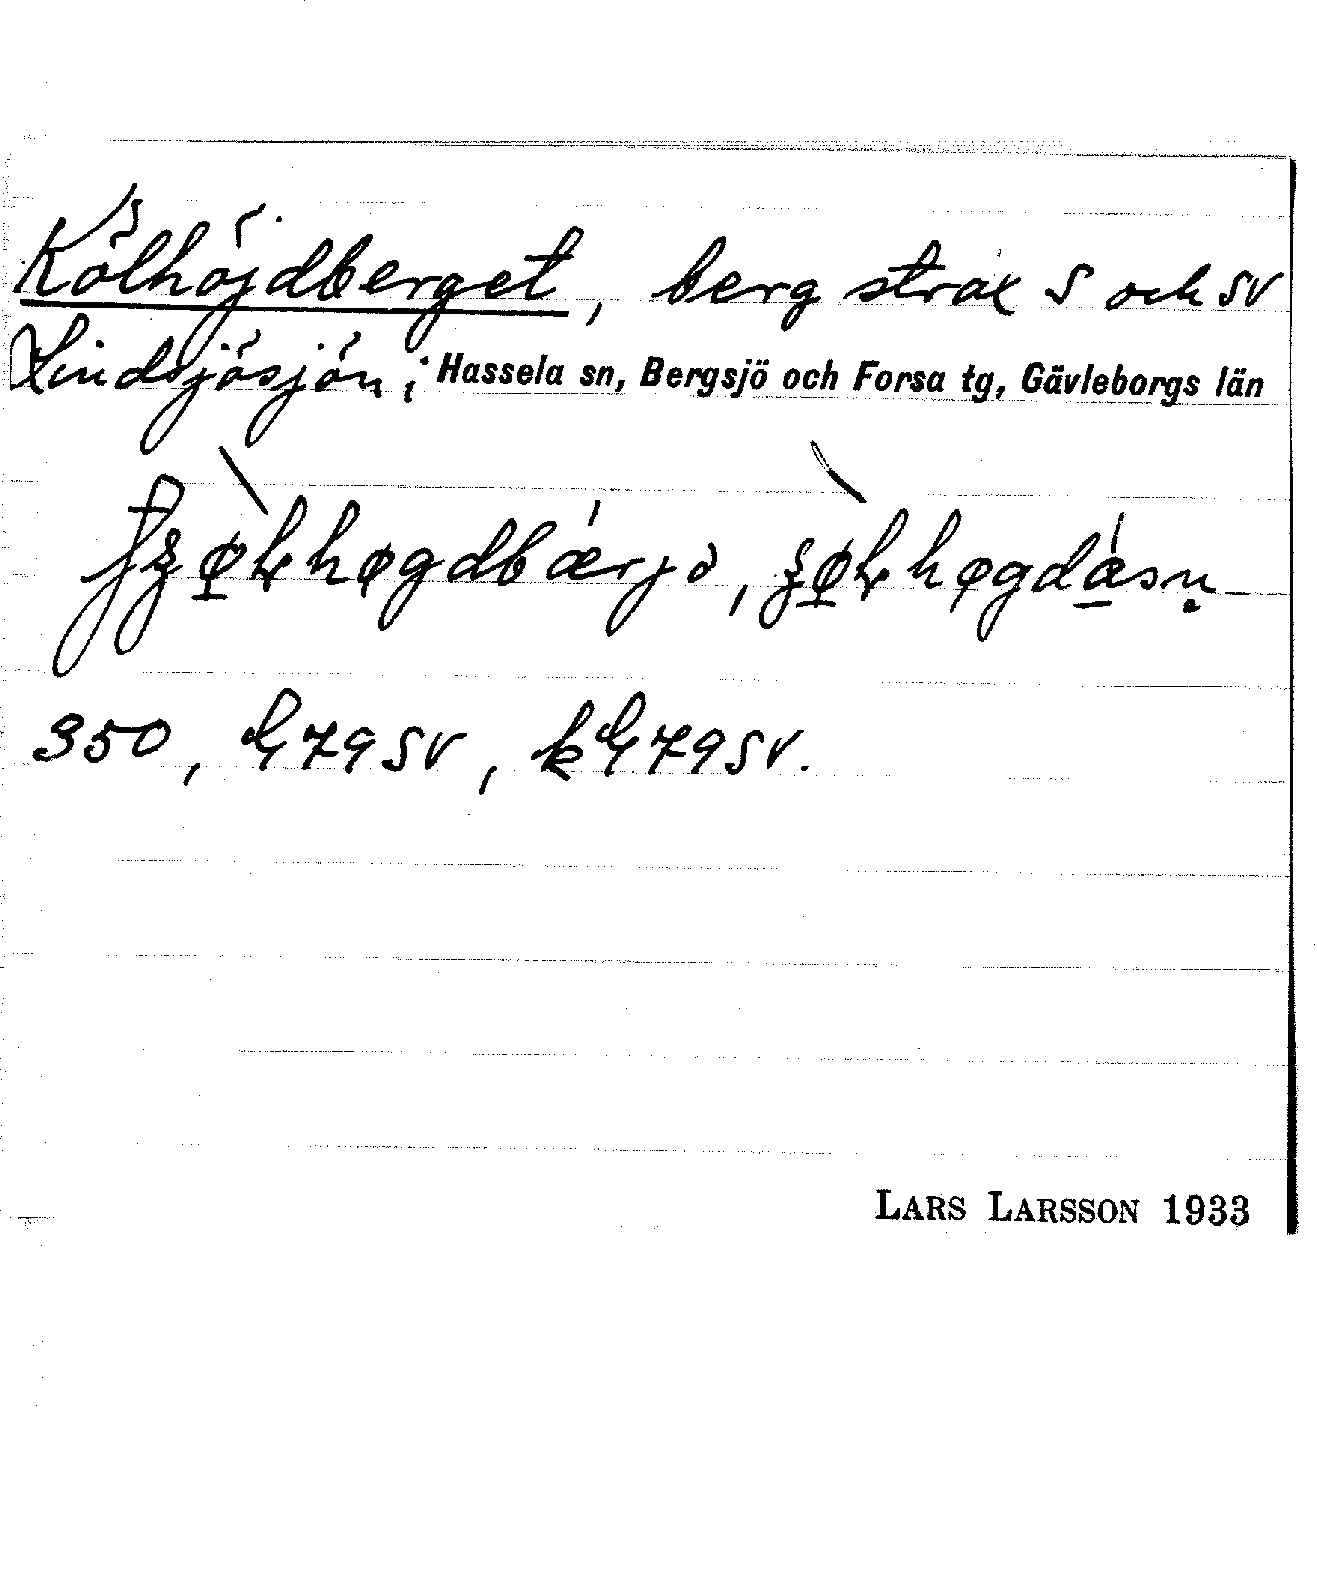 Kölhöjdberget, berg strax S och SV
Lindsjösjön; Hassela sn, Bergsjö och Forsa tg, Gävleborgs län
350, G79SV, kG79SV.
LARS LARSSON 1933